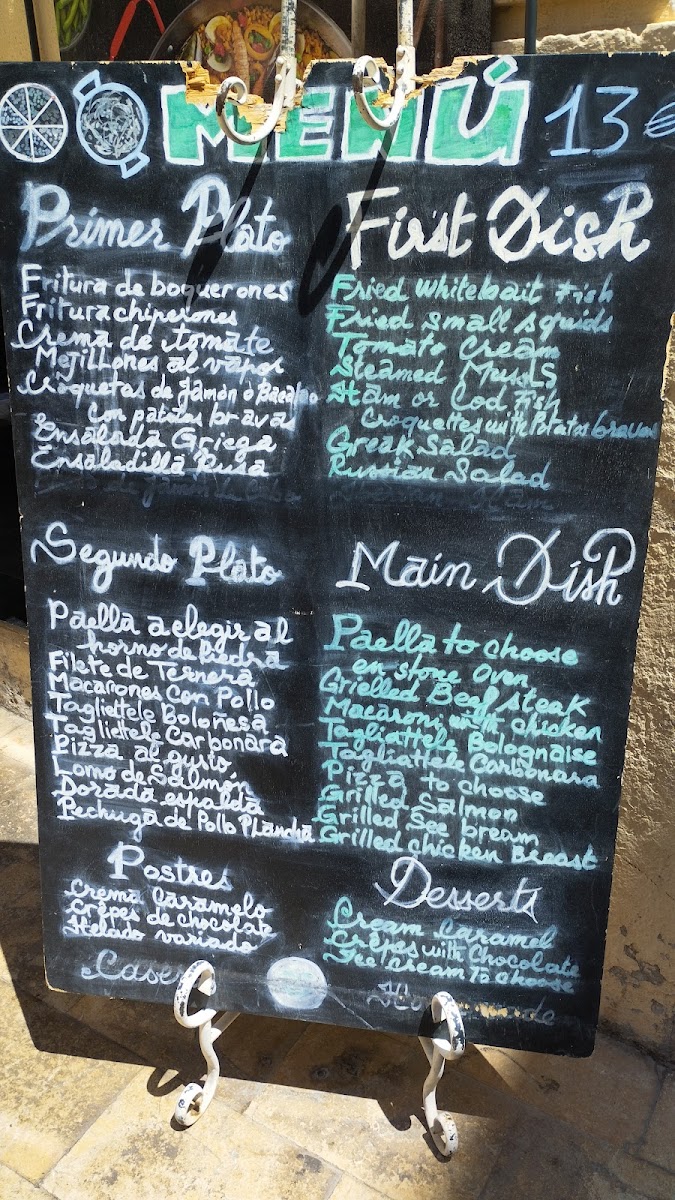 MENÚ 13 €
Primer Plato
Fritura de boquerones
Fritura chiperones
Crema de tomate
Mejillones al vapor
Croquetas de jamon o Bacalao
con patatas bravas
Ensalada Griega
Ensaladilla Rusa
First Dish
Fried whitebait Fish
Fried small squids
Tomato Cream
Steamed Musls
Ham or Cod Fish
Croquettes with Potatos bravas
Greak Salad
Russian Salad
Segundo Plato
Paella a elegir al
horno de Piedra
Filete de Ternera
Macarones con Pollo
Tagliettele Boloñesa
Tagliettele Carbonara
Pizza al gusto
Lomo de Salmón
Dorada espalda
Pechuga de Pollo Plancha
Main Dish
Paella to choose
en stone oven
Grielled Beef steak
Macaroni with chicken
Tagliattele Bolognaise
Tagliattele Carbonara
Pizza to choose
Grilled Salmon
Grilled See bream
Grilled chicken Breast
Postres
Crema Caramelo
Crêpes de chocolat
Helado variado
Desserts
Cream Caramel
Crêpes with Chocolate
Ice Cream To choose